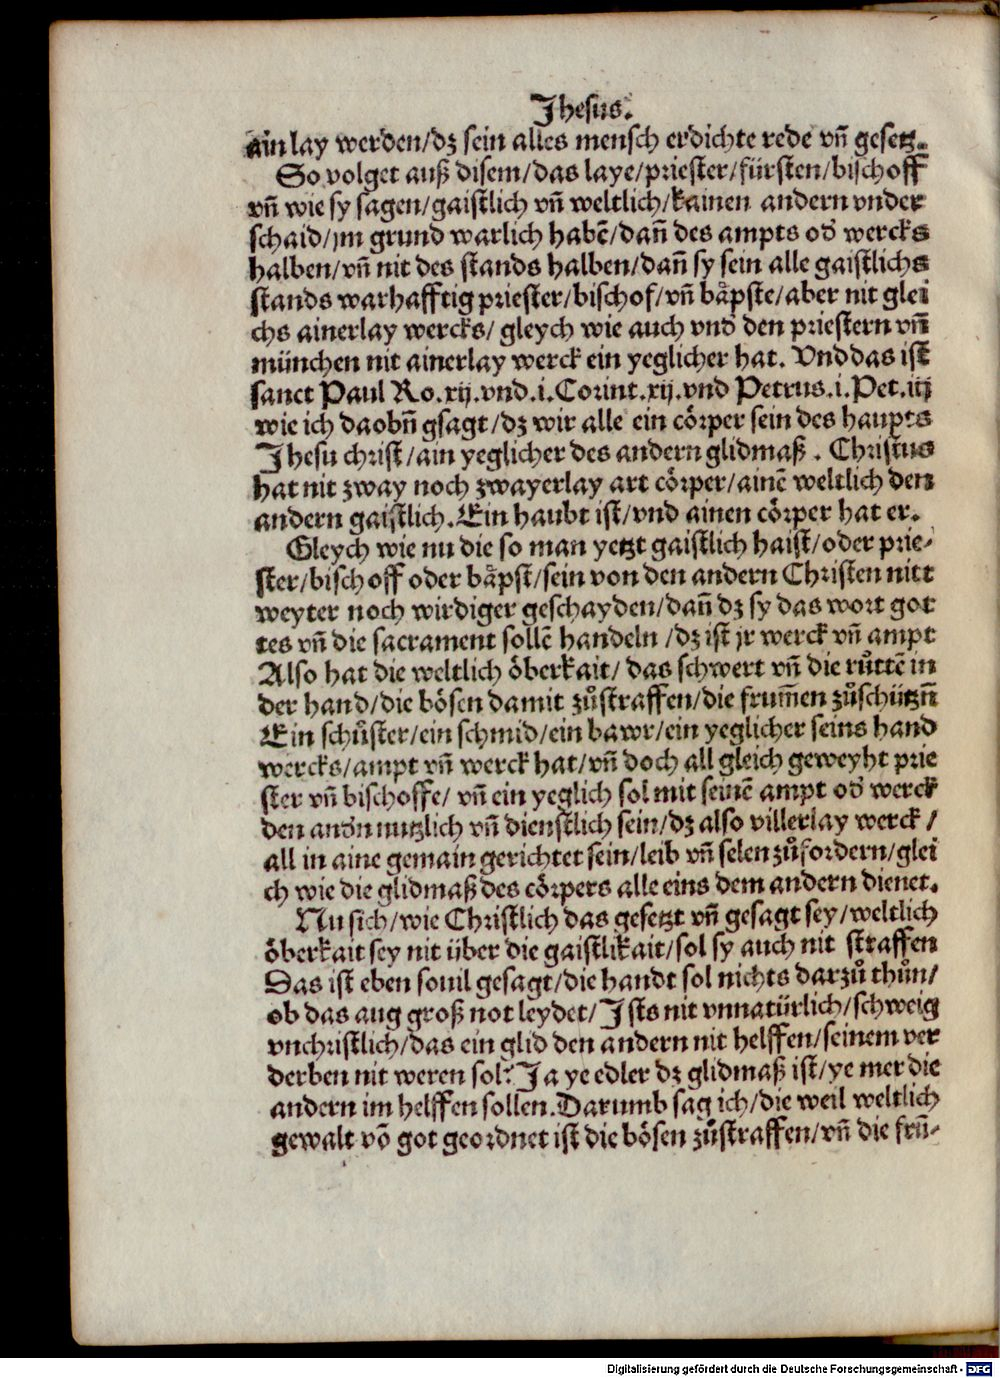 Jhesus.
ain lay werden/dz sein alles mensch erdichte rede vn̄ gesetz.
So volget auß disem/das laye/priester/fürsten/bischoff
vn̄ wie sy sagen/gaistlich vn̄ weltlich/kainen andern vnder
schaid/jm grund warlich habē/dañ des ampts od̕ wercks
halben/vn̄ nit des stands halben/dañ sy sein alle gaistlichs
stands warhafftig priester/bischof/vn̄ baͤpste/aber nit glei
chs ainerlay wercks/ gleych wie auch vnd̕ den priestern vn̄
münchen nit ainerlay werck ein yeglicher hat. Vnd das ist
sanct Paul Ro.xij.vnd.i.Corint.xij.vnd Petrus.i.Pet.iij
wie ich daobn̄ gsagt/dz wir alle ein coͤrper sein des haupts
Jhesu christ/ain yeglicher des andern glidmaß. Christus
hat nit zway noch zwayerlay art coͤrper/ainē weltlich den
andern gaistlich. Ein haubt ist/vnd ainen coͤrper hat er.
Gleych wie nu die so man yetzt gaistlich haist/oder prie-
ster/bischoff oder baͤpst/sein von den andern Christen nitt
weyter noch wirdiger geschayden/dañ dz sy das wort got
tes vn̄ die sacrament sollē handeln /dz ist jr werck vn̄ ampt
Also hat die weltlich oͤberkait/ das schwert vn̄ die ruͦttē in
der hand/die boͤsen damit zuͦstraffen/die frum̄en zuͦschützn̄
Ein schuͦster/ein schmid/ein bawr/ein yeglicher seins hand
wercks/ampt vn̄ werck hat/vn̄ doch all gleich geweyht prie
ster vn̄ bischoffe/ vn̄ ein yeglich sol mit seinē ampt od̕ werck
den and̕n nutzlich vn̄ dienstlich sein/dz also villerlay werck /
all in aine gemain gerichtet sein/leib vn̄ selen zuͦfordern/glei
ch wie die glidmaß des coͤrpers alle eins dem andern dienet.
Nu sich/wie Christlich das gesetzt vn̄ gesagt sey/weltlich
oͤberkait sey nit über die gaistlikait/sol sy auch nit straffen
Das ist eben souil gesagt/die handt sol nichts darzuͦ thuͦn/
ob das aug groß not leydet/Jsts nit vnnatürlich/schweig
vnchristlich/das ein glid den andern nit helffen/seinem ver
derben nit weren sol? Ja ye edler dz glidmaß ist/ye mer die
andern im helffen sollen. Darumb sag ich/die weil weltlich
gewalt vō got geordnet ist die boͤsen zuͦstraffen/vn̄ die frū-
Digitalisierung gefördert durch die Deutsche Forschungsgemeinschaft - DFG